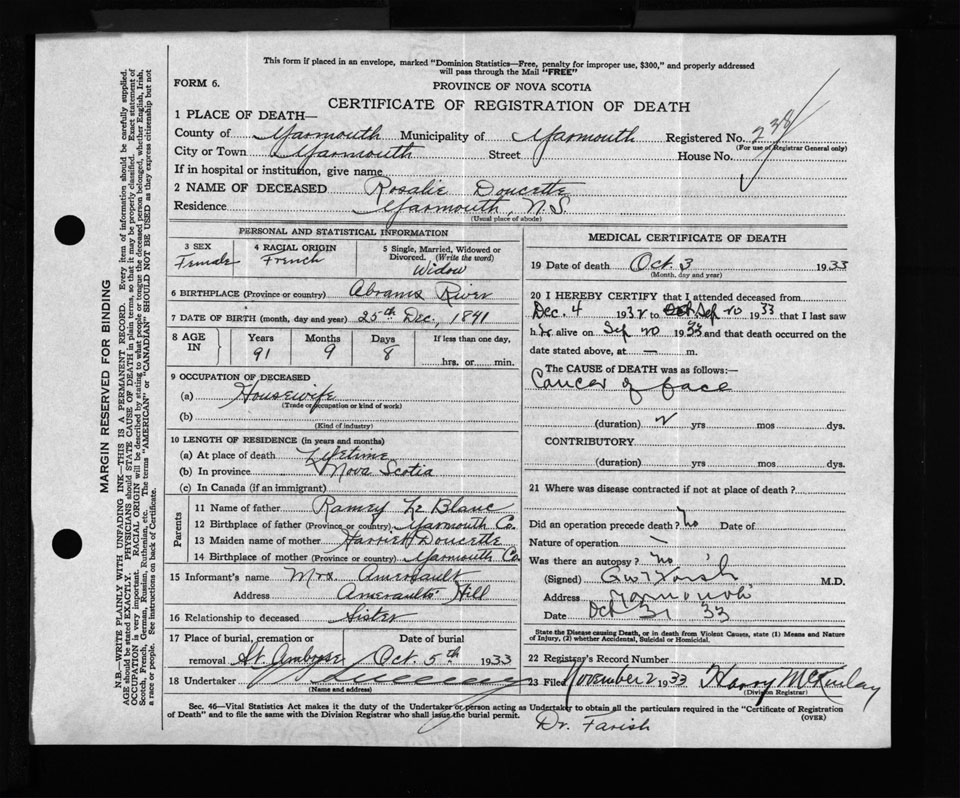 This form if placed in an envelope, marked "Dominion Statistics—Free, penalty for improper use, $300," and properly addressed
will pass through the Mail "FREE"
FORM 6.
PROVINCE OF NOVA SCOTIA
CERTIFICATE OF REGISTRATION OF DEATH
1 PLACE OF DEATH—
County of Yarmouth Municipality of Yarmouth Registered No. 238
(For use of Registrar General only)
City or Town Yarmouth Street House No.
If in hospital or institution, give name
2 NAME OF DECEASED Rosalie Doucette
Residence Yarmouth, N.S.
(Usual place of abode)
PERSONAL AND STATISTICAL INFORMATION
3 SEX Female
4 RACIAL ORIGIN French
5 Single, Married, Widowed or
Divorced. (Write the word)
Widow
6 BIRTHPLACE (Province or country) Abrams River
7 DATE OF BIRTH (month, day and year) 25th Dec., 1841
8 AGE IN
Years Months Days If less than one day,
91 9 8 hrs. or min.
9 OCCUPATION OF DECEASED
(a) Housewife
(Trade or occupation or kind of work)
(b)
(Kind of industry)
10 LENGTH OF RESIDENCE (in years and months)
(a) At place of death Lifetime
(b) In province Nova Scotia
(c) In Canada (if an immigrant)
Parents
11 Name of father Ramey Le Blanc
12 Birthplace of father (Province or country) Yarmouth Co.
13 Maiden name of mother Harriet Doucette
14 Birthplace of mother (Province or country) Yarmouth Co.
15 Informant's name Mrs. Amerault
Address Ameraults Hill
16 Relationship to deceased Sister
17 Place of burial, cremation or
removal St. Ambrose
Date of burial
Oct. 5th 1933
18 Undertaker
(Name and address)
MEDICAL CERTIFICATE OF DEATH
19 Date of death Oct. 3 1933
(Month, day and year)
20 I HEREBY CERTIFY that I attended deceased from
Dec. 4 1932 to Sep 20 1933 that I last saw
her alive on Sep 20 1933 and that death occurred on the
date stated above, at — m.
The CAUSE OF DEATH was as follows:—
Cancer of face
(duration) 2 yrs mos dys.
CONTRIBUTORY
(duration) yrs mos dys.
21 Where was disease contracted if not at place of death?
Did an operation precede death? no Date of
Nature of operation —
Was there an autopsy? no
(Signed) M.D.
Address Yarmouth
Date Oct 31 33
State the Disease causing Death, or in death from Violent Causes, state (1) Means and Nature
of Injury, (2) whether Accidental, Suicidal or Homicidal.
22 Registrar's Record Number
23 Filed November 2 1933 Harry McKinlay
(Division Registrar)
Sec. 46—Vital Statistics Act makes it the duty of the Undertaker or person acting as Undertaker to obtain all the particulars required in the "Certificate of Registration
of Death" and to file the same with the Division Registrar who shall issue the burial permit. (OVER)
Dr. Farish
MARGIN RESERVED FOR BINDING
N.B.—WRITE PLAINLY WITH UNFADING INK—THIS IS A PERMANENT RECORD. Every item of information should be carefully supplied.
AGE should be stated EXACTLY. PHYSICIANS should STATE CAUSE OF DEATH in plain terms, so that it may be properly classified. Exact statement of
OCCUPATION is very important. RACIAL ORIGIN will be described by stating to what people or tongue the deceased person belonged, whether English, Irish,
Scotch, French, German, Russian, Ruthenian, etc. The terms "AMERICAN" or "CANADIAN" SHOULD NOT BE USED as they express citizenship but not
a race or people. See instructions on back of Certificate.